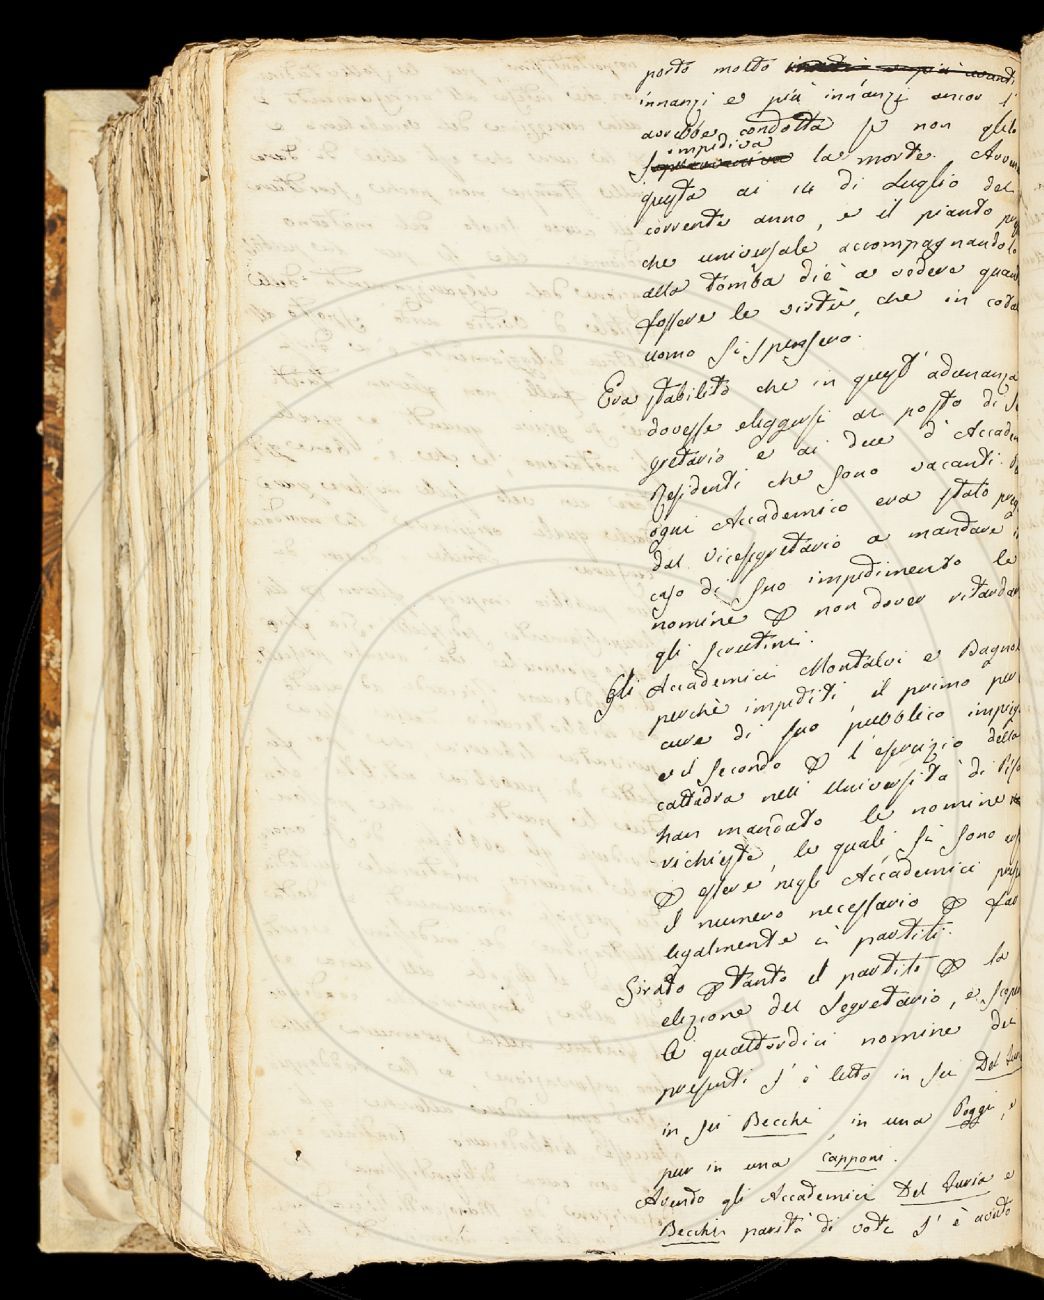 porto molto innanzi e più avanti
innanzi e più innanzi ancor l'
avrebbe condotta se non glielo
impediva
la morte. Avvenne
questa ai 14 di Luglio del
corrente anno, e il pianto
che universale accompagnandolo
alla tomba diè a vedere quan
fossero le virtù, che in codest
uomo si spensero.
Era stabilito che in quest' adunanza
dovesse eleggersi al posto di Se
gretario e ai due d' Accadem
Residenti che sono vacanti.
ogni Accademico era stato preg
dal Vicesegretario a mandare in
caso di suo impedimento le
nomine p non dover ritardar
gli scrutini.
Gli Accademici Montalvi e Bagnol
perchè impediti il primo per
cure di suo pubblico impieg
e il secondo p l' esercizio della
cattedra nell' Università di Pisa
han mandato le nomine
richieste, le quali si sono
p essere negli Accademici
il numero necessario p far
legalmente i partiti.
Girato p tanto il partito p la
elezione del Segretario, e scope
le quattordici nomine dei
presenti s' è letto in sei Del Furia
in sei Becchi, in una Poggi, e
pur in una Capponi.
Avendo gli Accademici Del Furia e
Becchi parità di voti s' è avuto